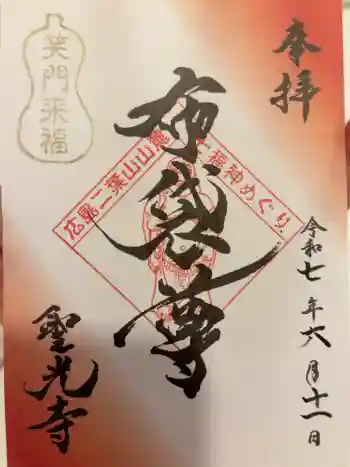 奉拝
笑門来福
布袋尊
広島二葉山山麓七福神めぐり
令和七年六月十一日
聖光寺